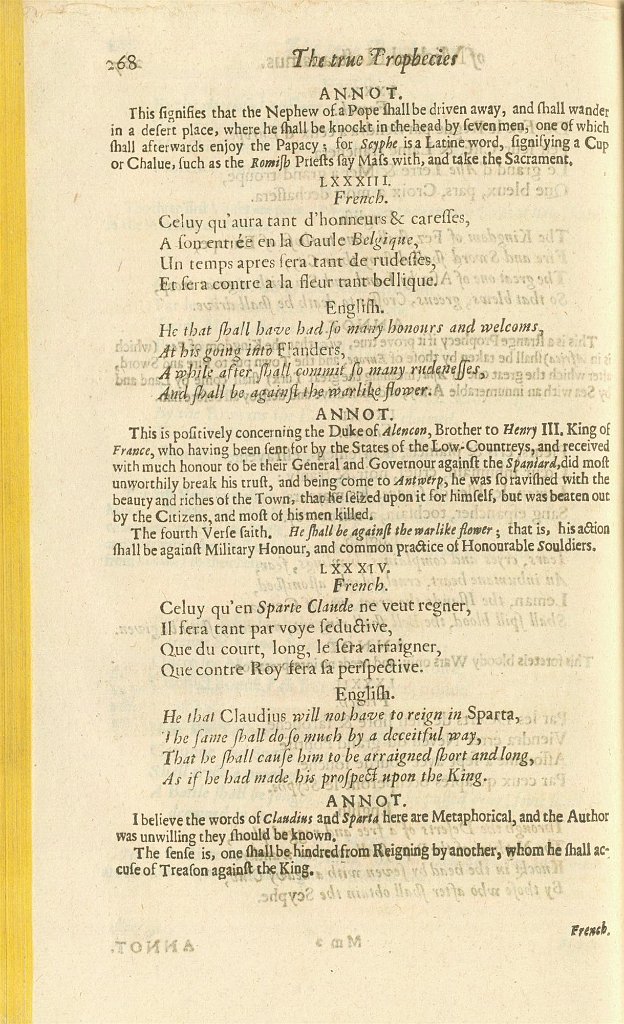 268 The true Prophecies
ANNOT.
This signifies that the Nephew of a Pope shall be driven away, and shall wander
in a desert place, where he shall be knockt in the head by seven men, one of which
shall afterwards enjoy the Papacy; for Scyphe is a Latine word, signifying a Cup
or Chalue, such as the Romish Priests say Mass with, and take the Sacrament.
LXXXIII.
French.
Celuy qu'aura tant d'honneurs & caresses,
A son entrée en la Gaule Belgique,
Un temps apres sera tant de rudesses,
Et sera contre a la fleur tant bellique.
English.
He that shall have had so many honours and welcoms,
At his going into Flanders,
A while after shall commit so many rudenesses,
And shall be against the warlike flower.
ANNOT.
This is positively concerning the Duke of Alencon, Brother to Henry III. King of
France, who having been sent for by the States of the Low-Countreys, and received
with much honour to be their General and Governour against the Spaniard, did most
unworthily break his trust, and being come to Antwerp, he was so ravished with the
beauty and riches of the Town, that he seized upon it for himself, but was beaten out
by the Citizens, and most of his men killed.
The fourth Verse saith. He shall be against the warlike flower; that is, his action
shall be against Military Honour, and common practice of Honourable Souldiers.
LXXXIV.
French.
Celuy qu'en Sparte Claude ne veut regner,
Il sera tant par voye seductive,
Que du court, long, le sera arraigner,
Que contre Roy sera sa perspective.
English.
He that Claudius will not have to reign in Sparta,
The same shall do so much by a deceitful way,
That he shall cause him to be arraigned short and long,
As if he had made his prospect upon the King.
ANNOT.
I believe the words of Claudius and Sparta here are Metaphorical, and the Author
was unwilling they should be known.
The sense is, one shall be hindred from Reigning by another, whom he shall ac-
cuse of Treason against the King.
French.